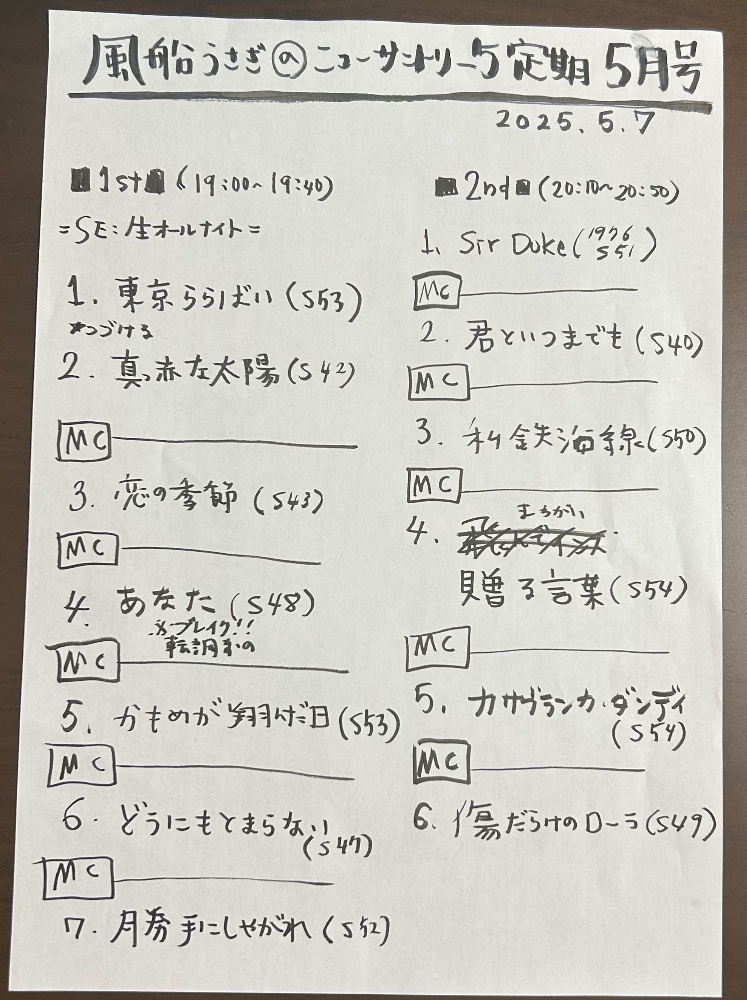 風船うさぎのニューサントリー5定期 5月号
2025.5.7
■1st■(19:00〜19:40)
=SE:生オールナイト=
1. 東京ららばい(S53)
*つづける
2. 真っ赤な太陽(S42)
MC
3. 恋の季節(S43)
MC
4. あなた(S48)
※ブレイク!!
転調あの
MC
5. かもめが翔んだ日(S53)
MC
6. どうにもとまらない
(S47)
MC
7. 勝手にしやがれ(S52)
■2nd■(20:10〜20:50)
1. Sir Duke(1976 S51)
MC
2. 君といつまでも(S40)
MC
3. 私鉄沿線(S50)
MC
まちがい
4.
贈る言葉(S54)
MC
5. カサブランカ・ダンディ
(S54)
MC
6. 傷だらけのローラ(S49)